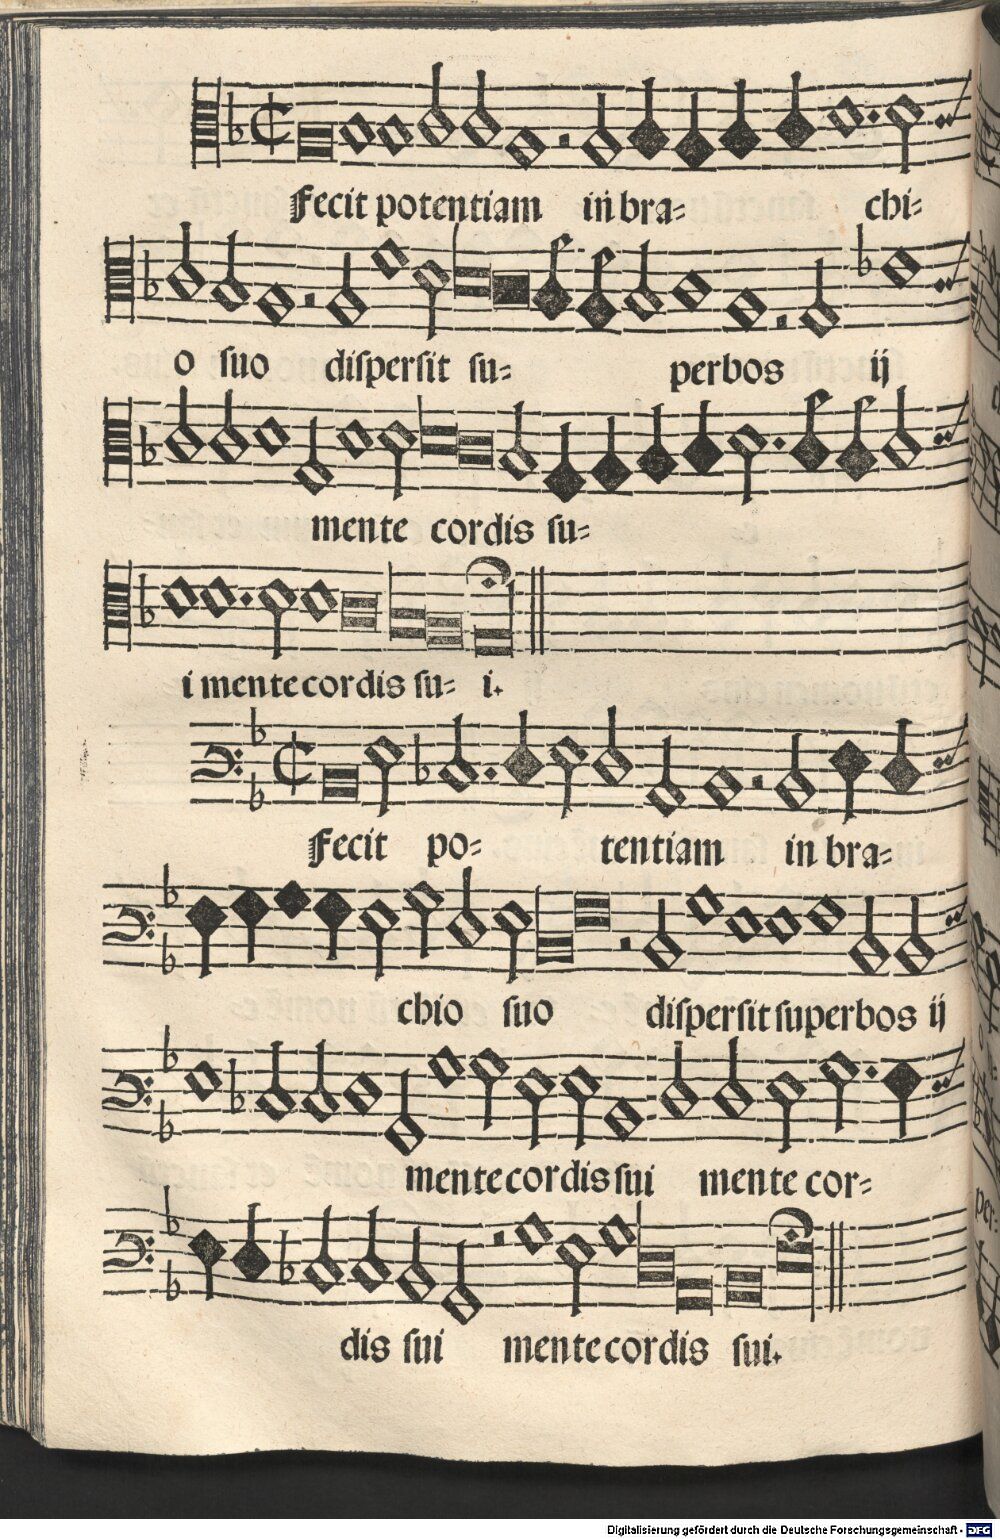 Fecit potentiam in bra= chi=
o suo dispersit su= perbos ij
mente cordis su=
i mente cordis su= i.
Fecit po= tentiam in bra=
chio suo dispersit superbos ij
mente cordis sui mente cor=
dis sui mente cordis sui.
Digitalisierung gefördert durch die Deutsche Forschungsgemeinschaft - DFG